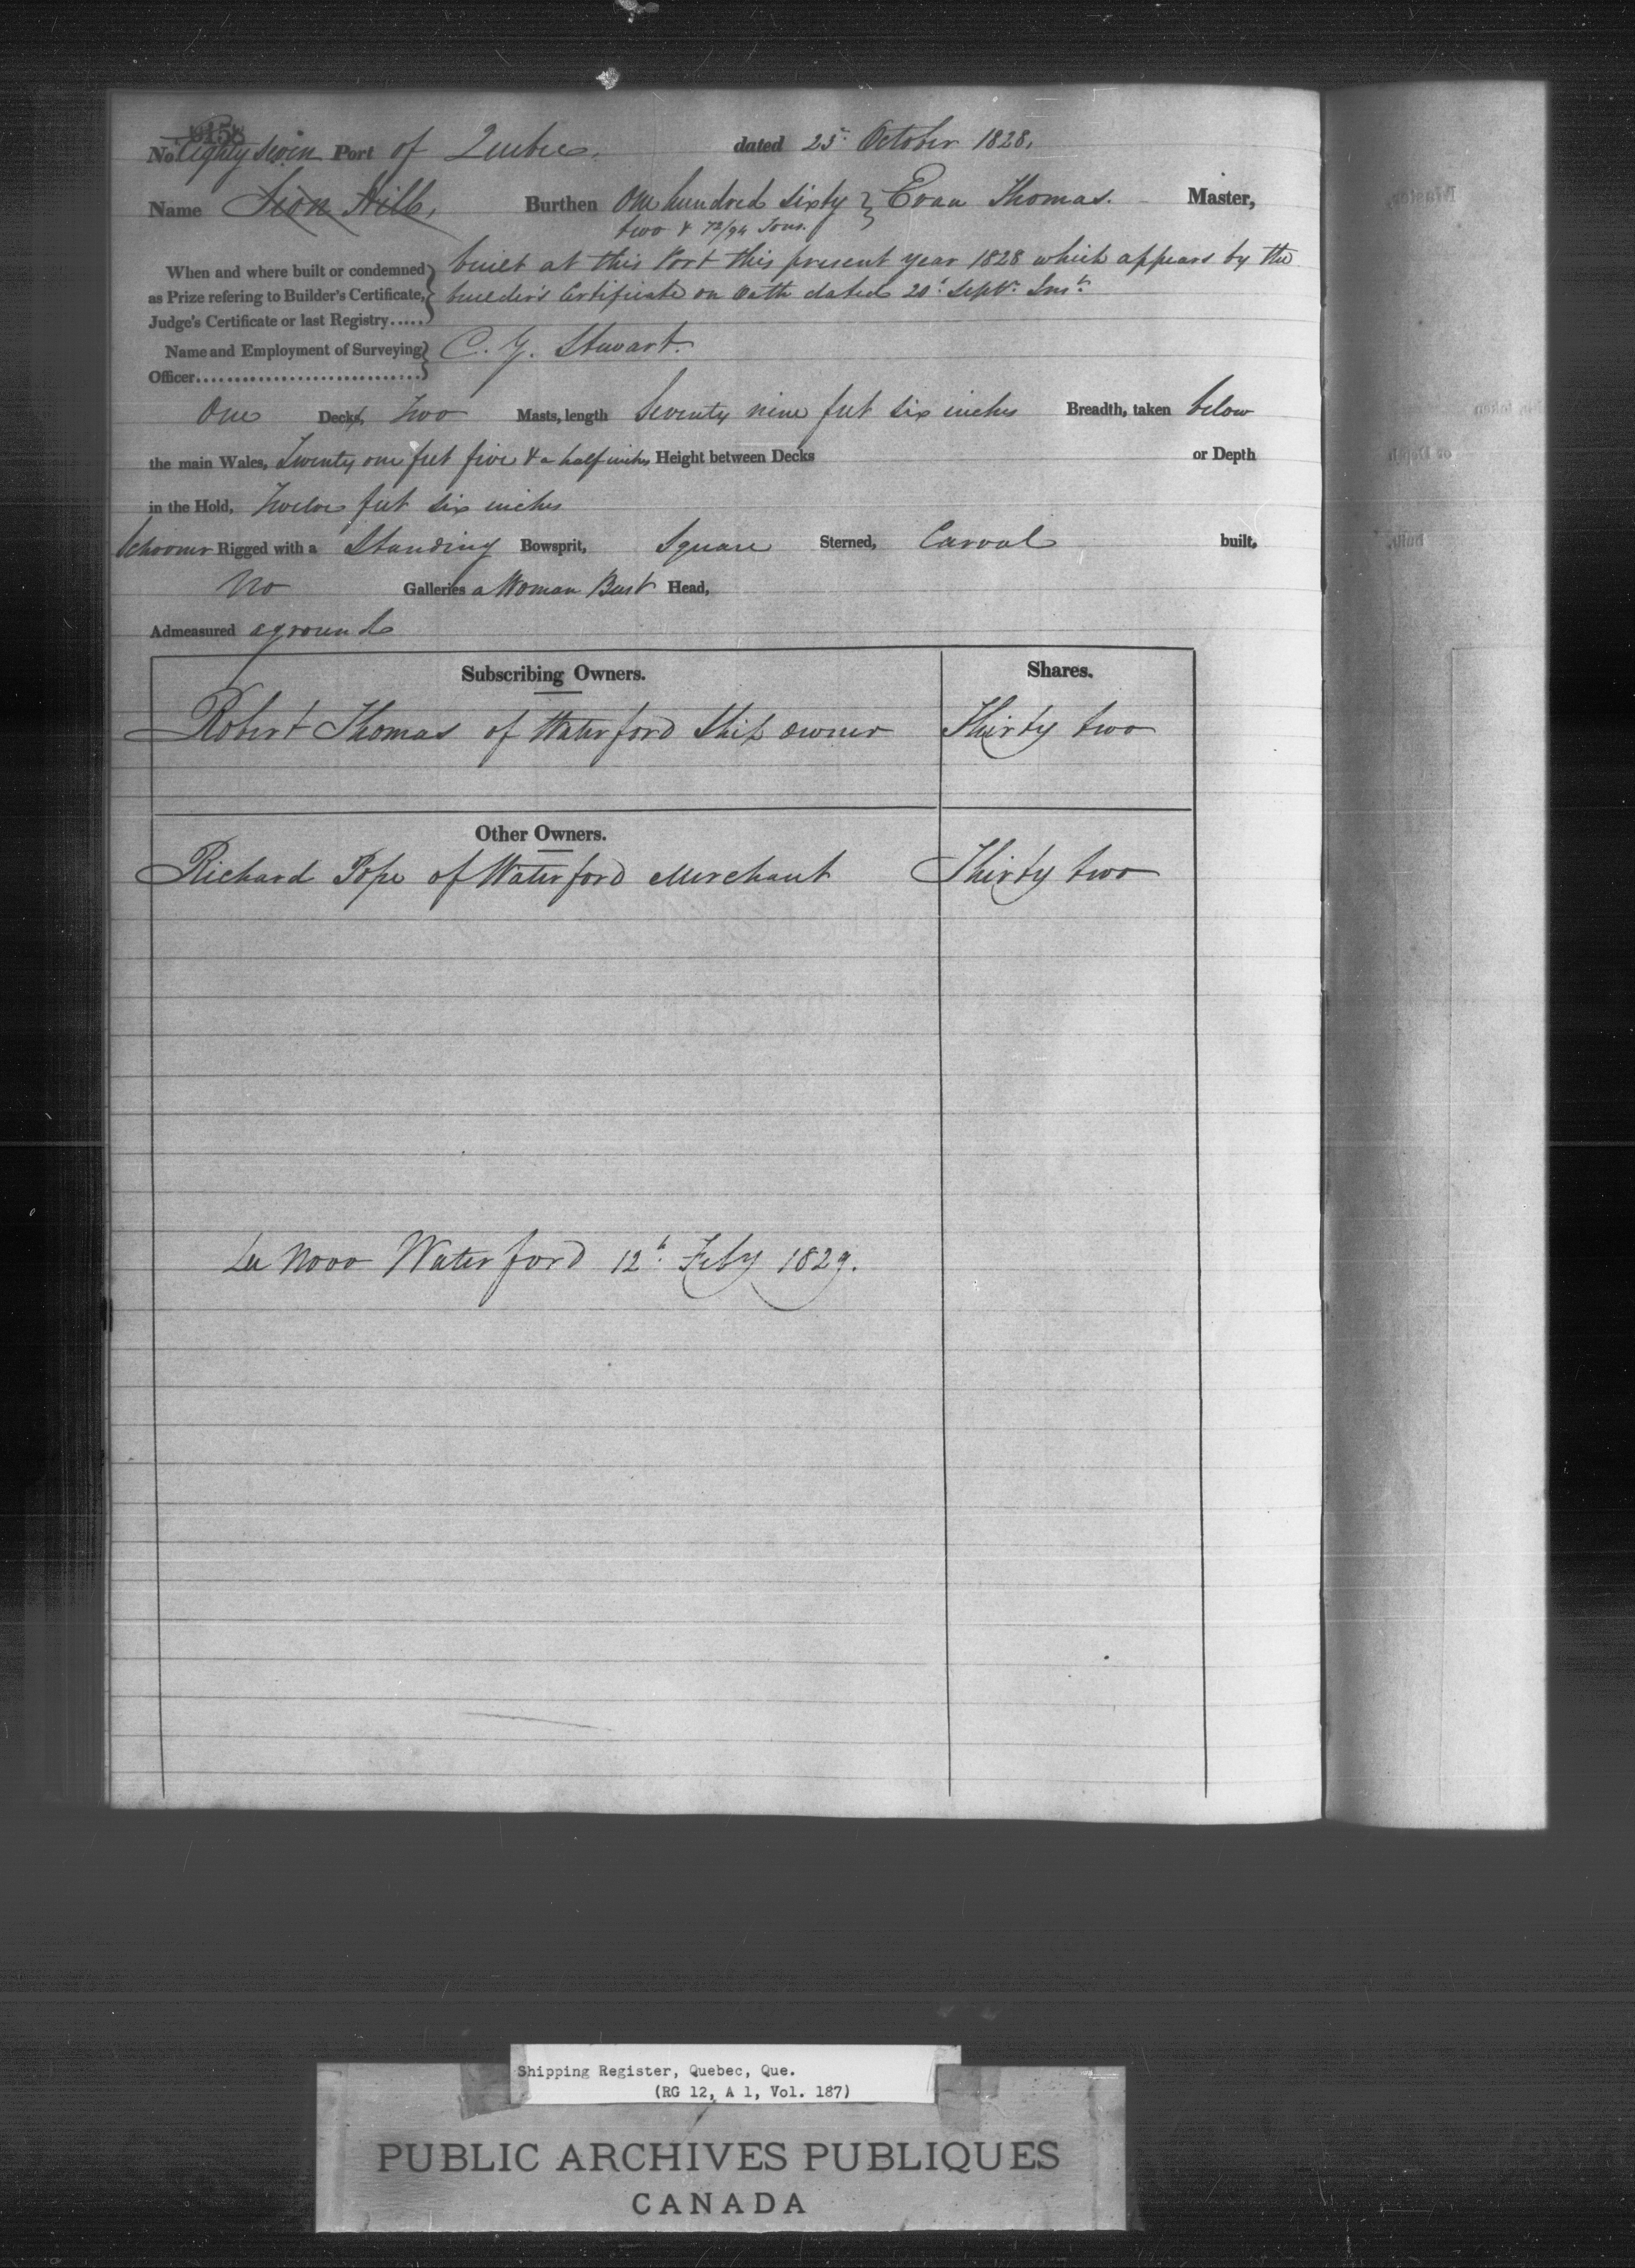 158
No Eighty seven Port of Quebec, dated 25th October 1828,
Name Sion Hill, Burthen One hundred sixty } Evan Thomas. Master,
two & 72/94 Tons.
When and where built or condemned built at this Port this present year 1828 which appears by the
as Prize refering to Builder's Certificate, builder's Certificate on Oath dated 20th Septr. Inst.
Judge's Certificate or last Registry.....
Name and Employment of Surveying C. G. Stewart.
Officer..............................
One Deck, Two Masts, length Seventy nine feet six inches Breadth, taken below
the main Wales, Twenty one feet five & a half inches Height between Decks or Depth
in the Hold, Twelve feet six inches
Schooner Rigged with a Standing Bowsprit, Square Sterned, Carvel built,
No Galleries a Woman Bust Head,
Admeasured aground
Subscribing Owners. Shares.
Robert Thomas of Waterford Ship owner Thirty two
Other Owners.
Richard Pope of Waterford Merchant Thirty two
De Novo Waterford 12th Feby 1829.
Shipping Register, Quebec, Que.
(RG 12, A 1, Vol. 187)
PUBLIC ARCHIVES PUBLIQUES
CANADA